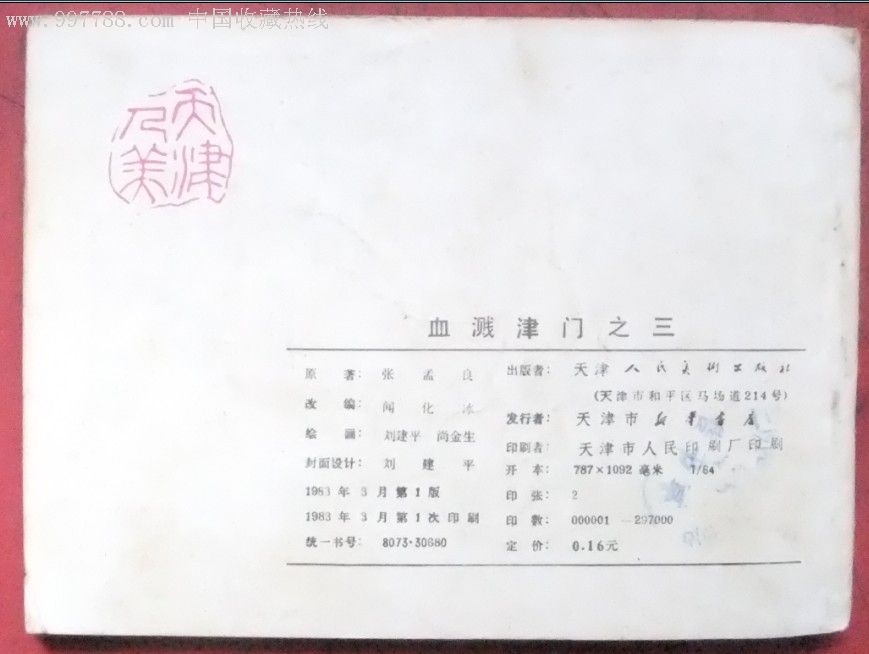 www.997788.com 中国收藏热线
天津
人美
血溅津门之三
原著：张孟良
改编：闻化冰
绘画：刘建平 尚金生
封面设计：刘建平
1983年3月第1版
1983年3月第1次印刷
统一书号：8073·30680
出版者：天津人民美术出版社
（天津市和平区马场道214号）
发行者：天津市新华书店
印刷者：天津市人民印刷厂印刷
开本：787×1092毫米 1/64
印张：2
印数：000001—297000
定价：0.16元